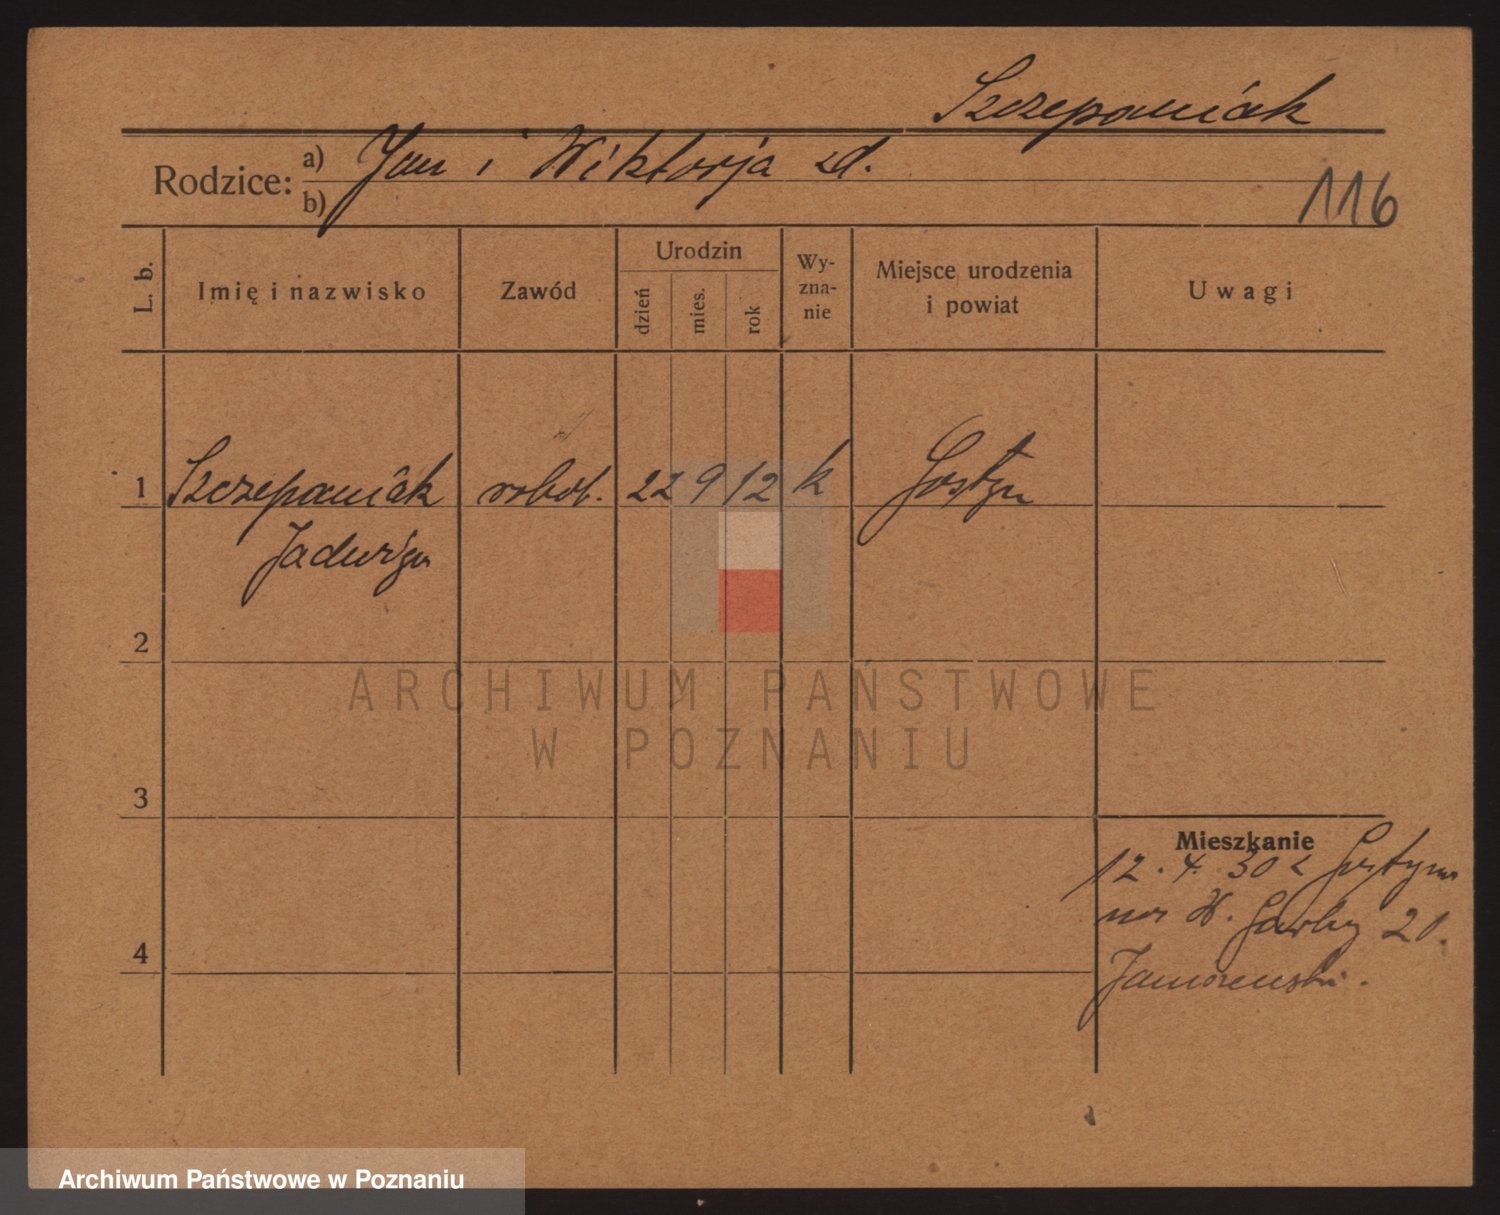 Szczepaniak
Rodzice: a) Jan i Wiktorja zd.
b)
116
L. b.
Imię i nazwisko
Zawód
Urodzin
dzień
mies.
rok
Wy-
zna-
nie
Miejsce urodzenia
i powiat
Uwagi
1 Szczepaniak robot. 22 9 12 k Gostyń
Jadwiga
2
3
4
Mieszkanie
12. 4. 30 z Gostynia
na W. Garbary 20.
ARCHIWUM PAŃSTWOWE
W POZNANIU
Archiwum Państwowe w Poznaniu